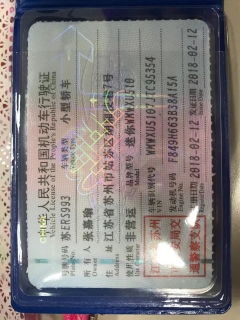 中华人民共和国机动车行驶证
Vehicle License of the People's Republic of China
号牌号码 苏ERS993 车辆类型 小型轿车
Plate No. Vehicle Type
所有人 张嘉瑜
Owner
住址 江苏省苏州市姑苏区
Address
使用性质 非营运 品牌型号 迷你WMWXU510
Use Character Model
江苏省苏州 车辆识别代号
VIN
发动机号码 F849H663B38A15A
Engine No.
注册日期 2018-02-12 发证日期 2018-02-12
Register Date Issue Date